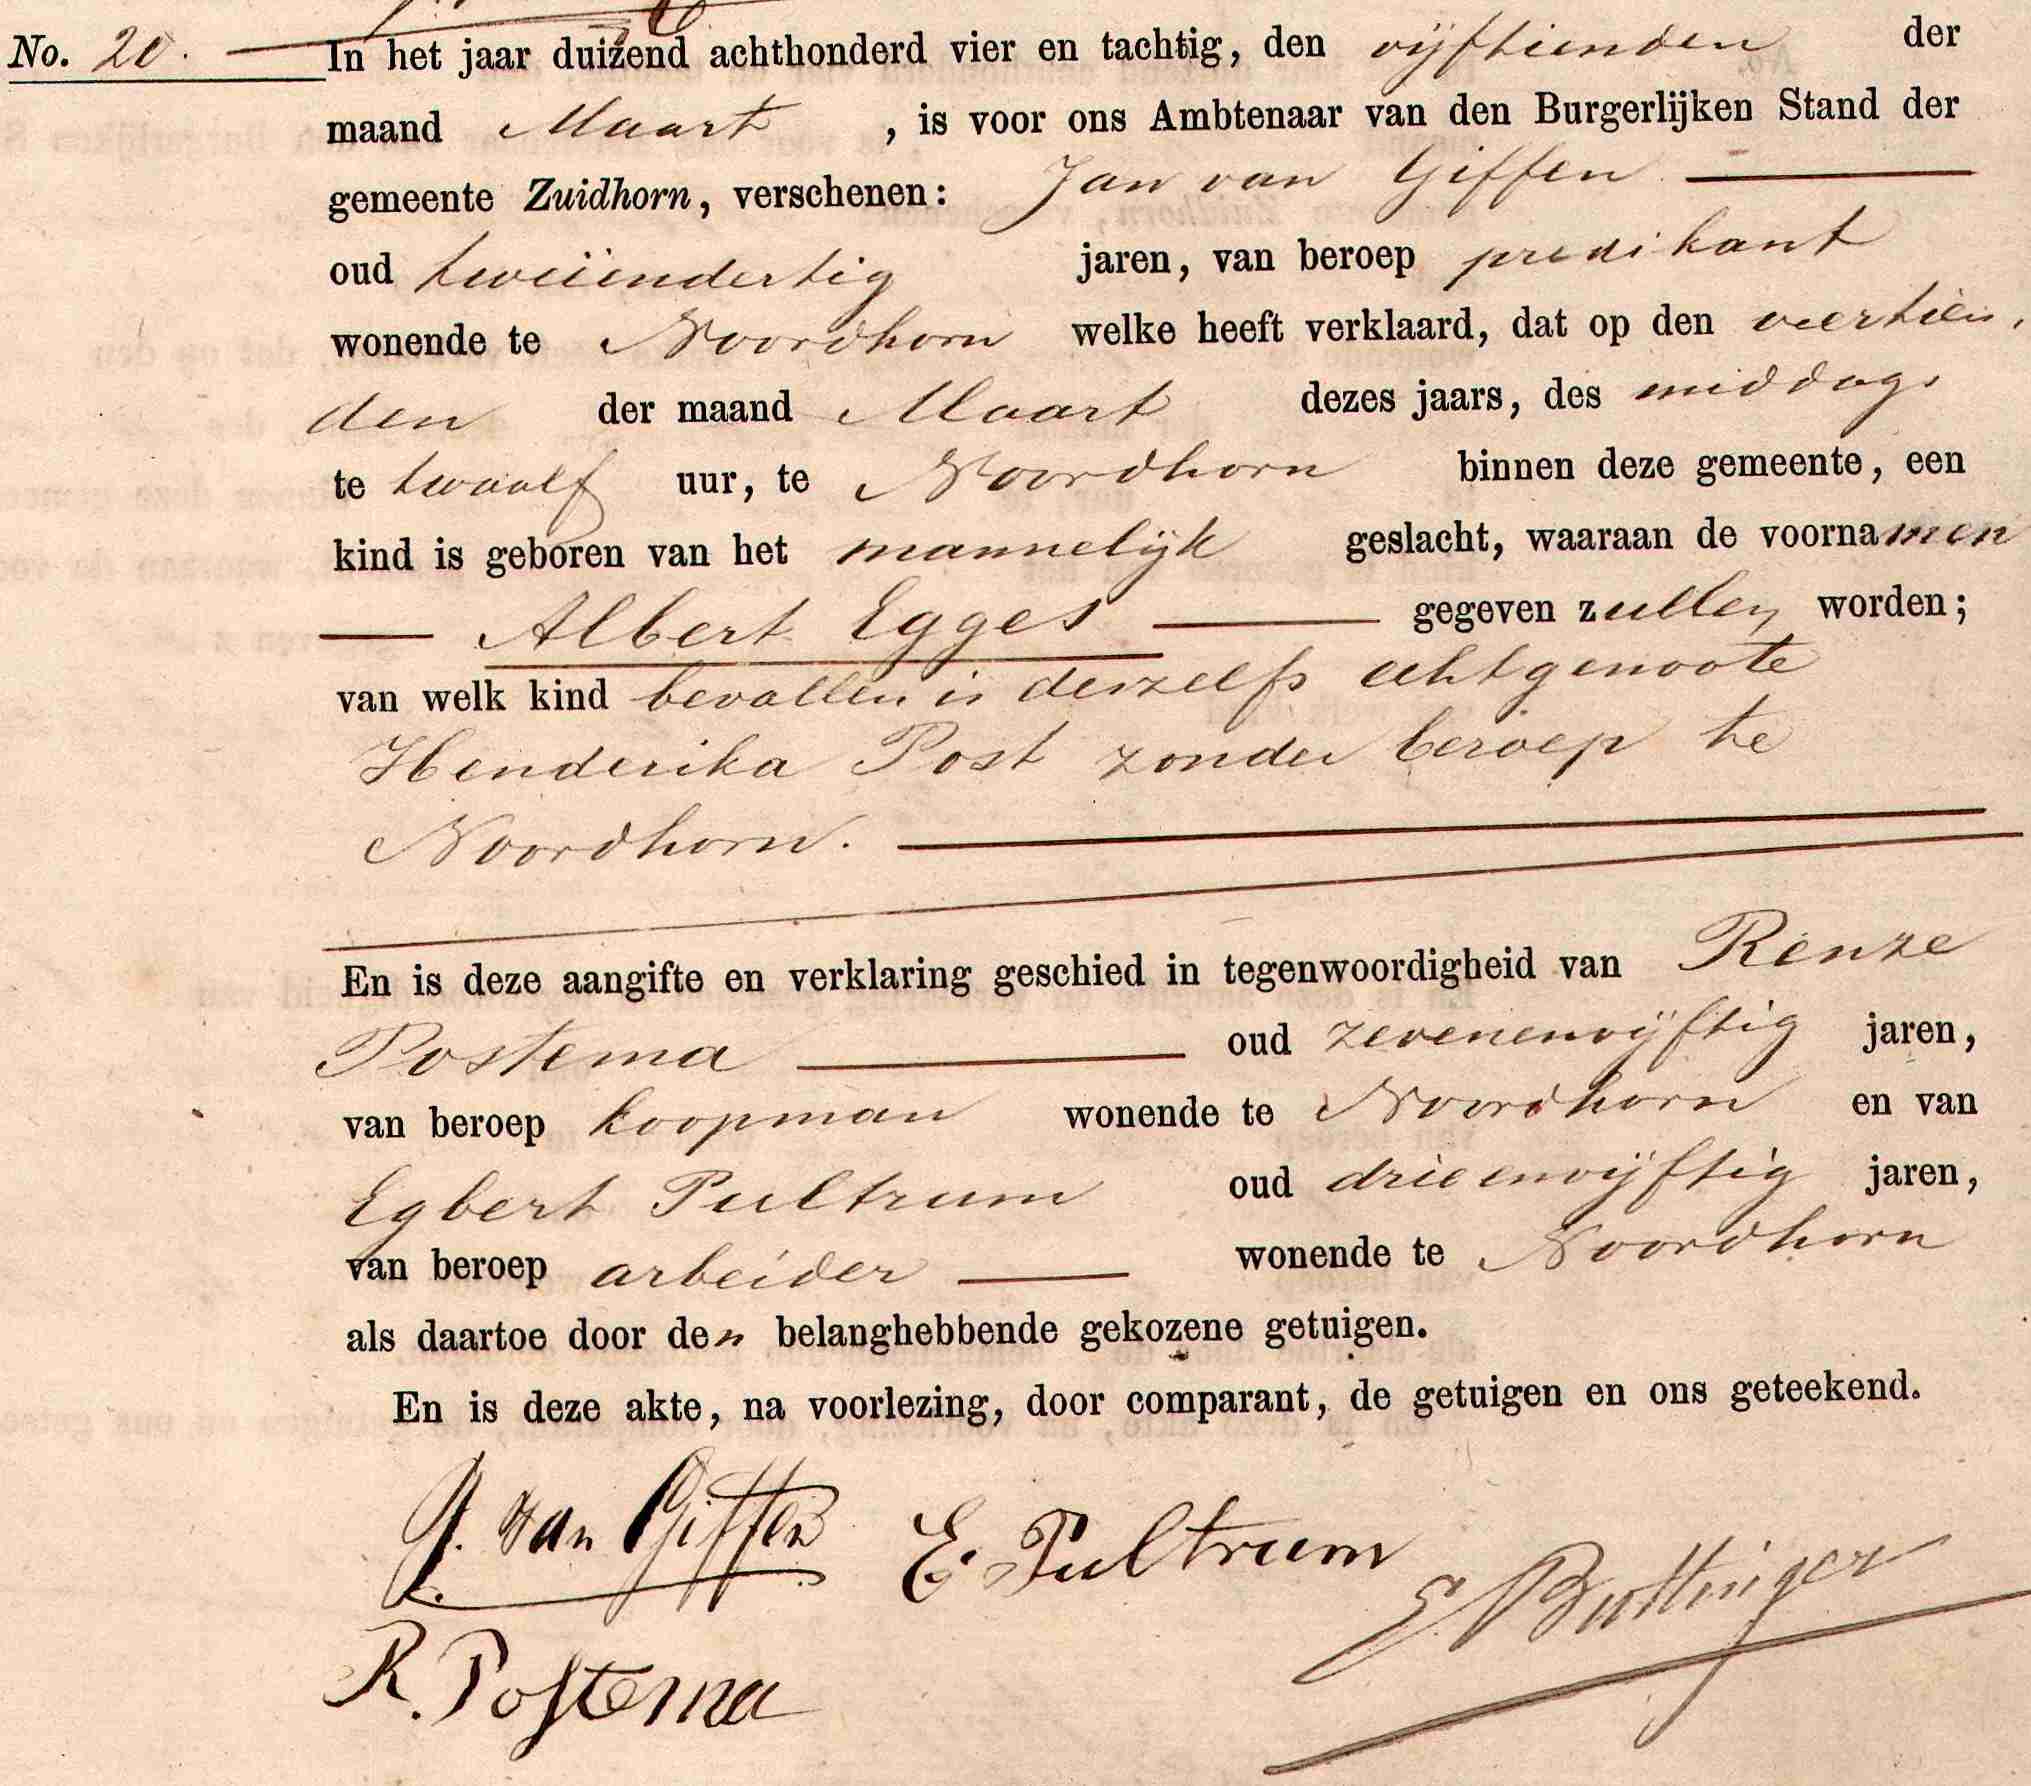 No. 20. In het jaar duizend achthonderd vier en tachtig, den vijftienden der
maand Maart, is voor ons Ambtenaar van den Burgerlijken Stand der
gemeente Zuidhorn, verschenen: Jan van Giffen
oud tweeëndertig jaren, van beroep predikant
wonende te Noordhorn welke heeft verklaard, dat op den veertien,
den der maand Maart dezes jaars, des middags
te twaalf uur, te Noordhorn binnen deze gemeente, een
kind is geboren van het mannelijk geslacht, waaraan de voornamen
Albert Egges gegeven zullen worden;
van welk kind bevallen is deszelfs echtgenoote
Henderika Post zonder beroep te
Noordhorn.
En is deze aangifte en verklaring geschied in tegenwoordigheid van Renze
Postema oud zevenenvijftig jaren,
van beroep koopman wonende te Noordhorn en van
Egbert Pultrum oud drieenvijftig jaren,
van beroep arbeider wonende te Noordhorn
als daartoe door den belanghebbende gekozene getuigen.
En is deze akte, na voorlezing, door comparant, de getuigen en ons geteekend.
J. van Giffen E. Pultrum
R. Postema